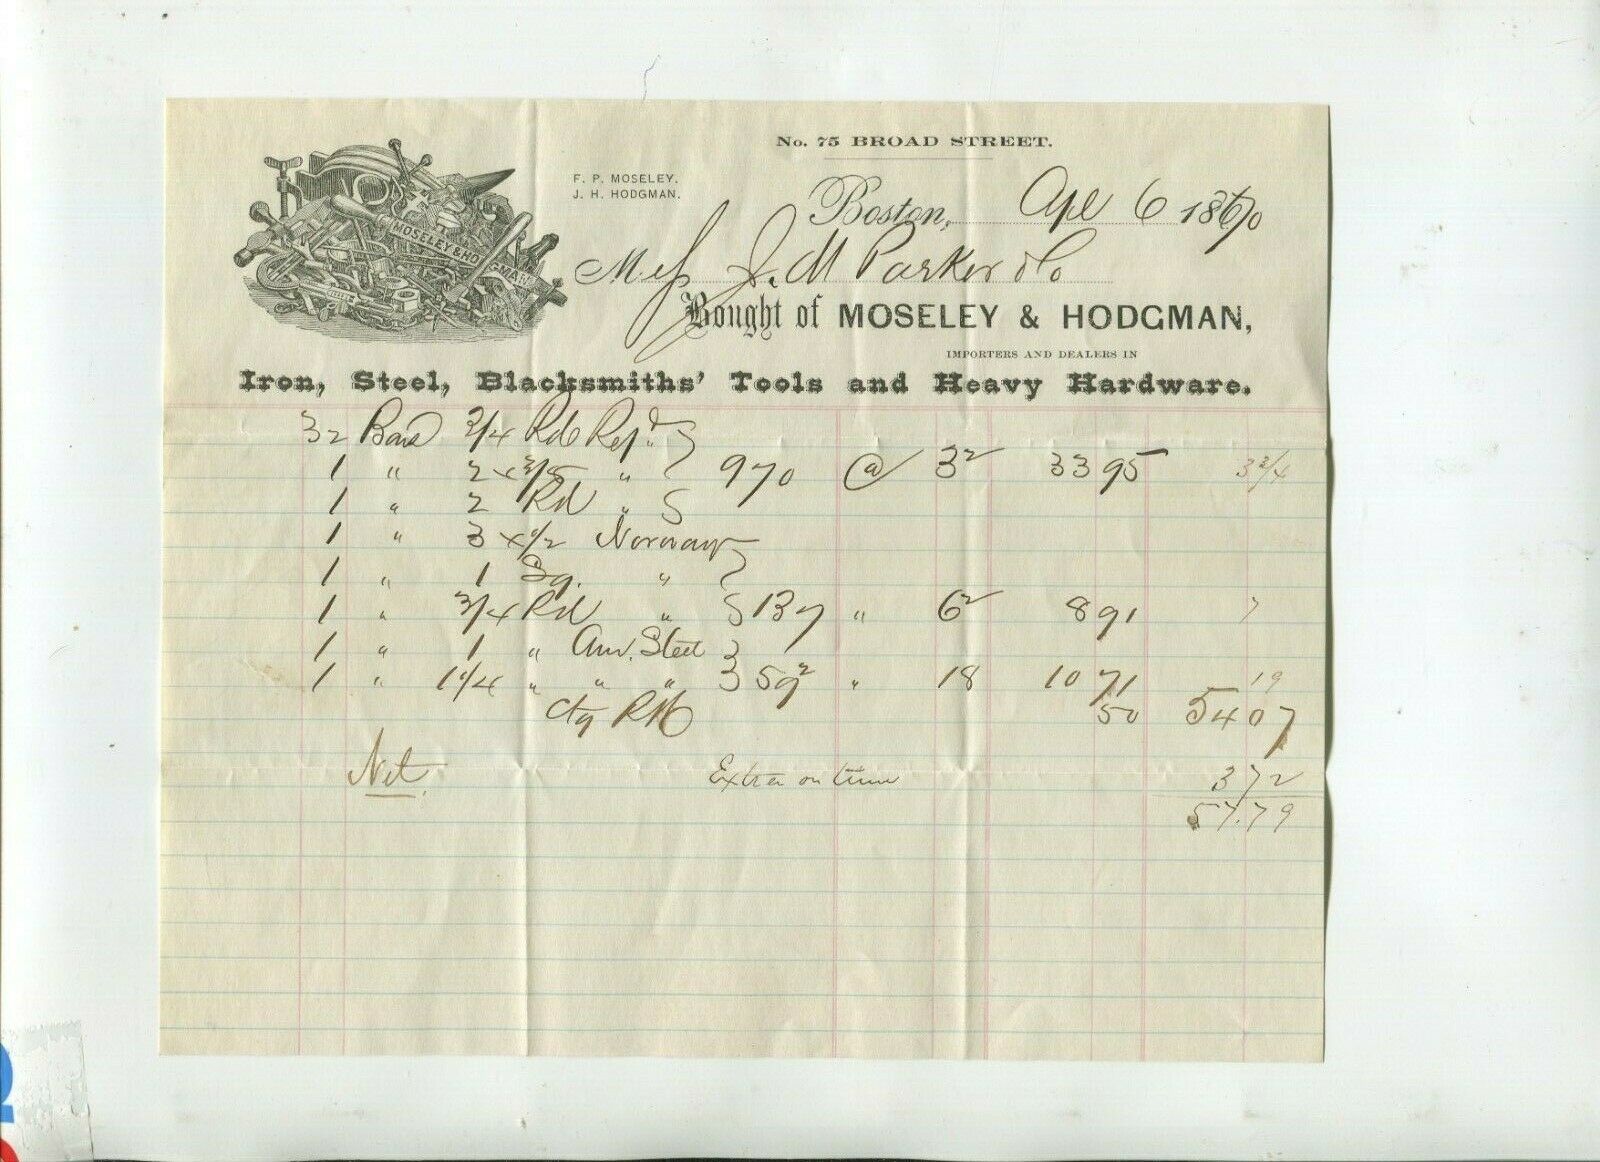 No. 75 BROAD STREET.
F. P. MOSELEY.
J. H. HODGMAN.
Boston, Apl 6 1870
MOSELEY & HODGMAN
Mess J. M Parker & Co
Bought of MOSELEY & HODGMAN,
IMPORTERS AND DEALERS IN
Iron, Steel, Blacksmiths' Tools and Heavy Hardware.
32 Bars 3/4 Rd Refd
1 " 2 x 3/8 " 970 @ 3½ 33 95 3 3/4
1 " 2 Rd "
1 " 3 x 1/2 Norway
1 " 1 Sq. "
1 " 3/4 Rd " 137 " 6½ 8 91 7
1 " 1 " Am. Steel
1 " 1 1/4 " " " 59½ " 18 10 71 19
Ctg 50 54 07
Net. Extra on time 3 72
57.79